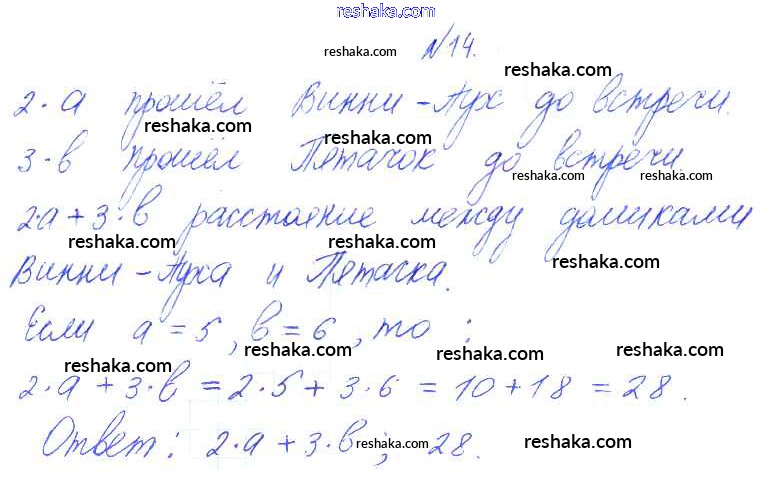 reshaka.com
reshaka.com №14.
reshaka.com
2·a прошёл Винни-Пух до встречи.
reshaka.com reshaka.com
3·в прошёл Пятачок до встречи
reshaka.com reshaka.com
2·a+3·в расстояние между домиками
reshaka.com reshaka.com reshaka.com
Винни-Пуха и Пятачка.
Если a=5, в=6, то :
reshaka.com reshaka.com reshaka.com reshaka.com
2·a+3·в=2·5+3·6=10+18=28.
Ответ: 2·a+3·в; 28.
reshaka.com reshaka.com reshaka.com